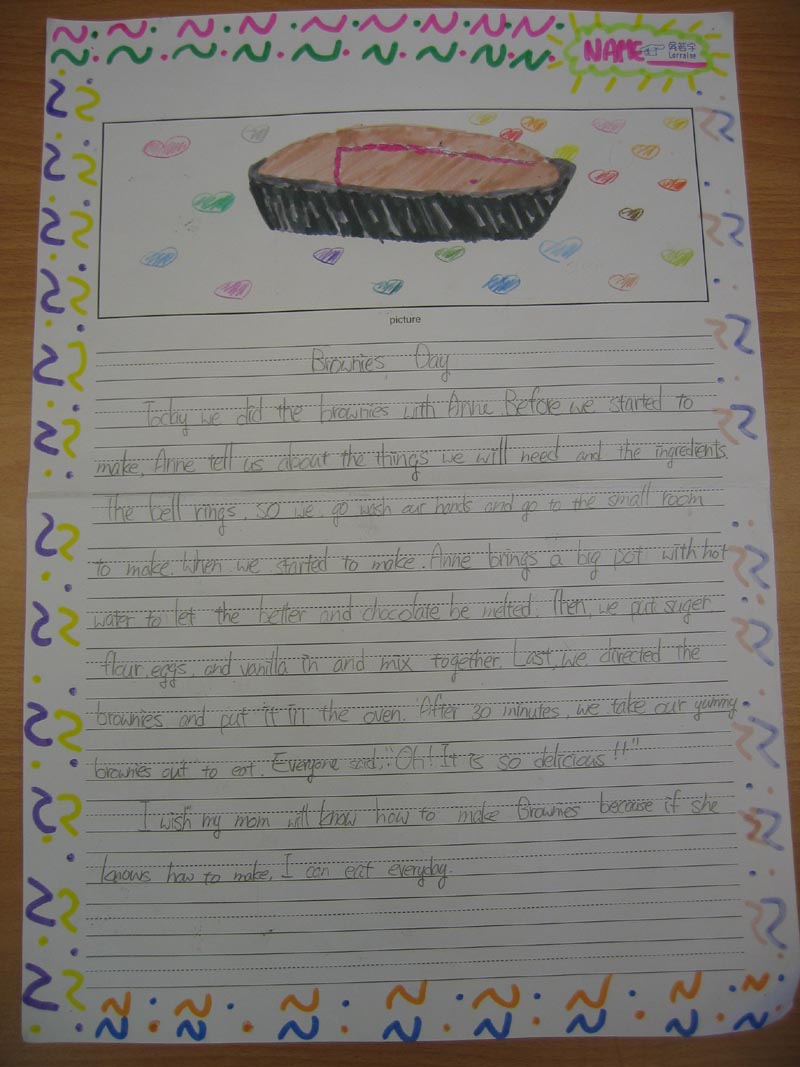 NAME
Lorraine
picture
Brownies Day
Today we did the brownies with Anne. Before we started to
make, Anne tell us about the things we will need and the ingredients.
The bell rings, so we go wash our hands and go to the small room
to make. When we started to make. Anne brings a big pot with hot
water to let the better and chocolate be melted. Then, we put suger
flour, eggs, and vanilla in and mix together. Last, we directed the
brownies and put it in the oven. After 30 minutes, we take our yummy
brownies out to eat. Everyone said, "Oh! It is so delicious!!"
I wish my mom will know how to make Brownies because if she
knows how to make, I can eat everyday.